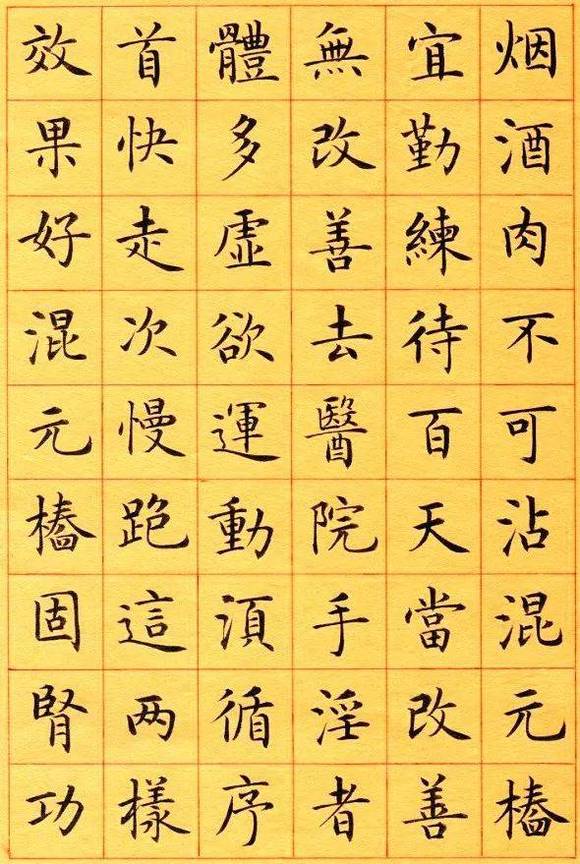 烟酒肉不可沾混元樁
宜勤練待百天當改善
無改善去醫院手淫者
體多虛欲運動湏循序
首快走次慢跑這两樣
效果好混元樁固腎功